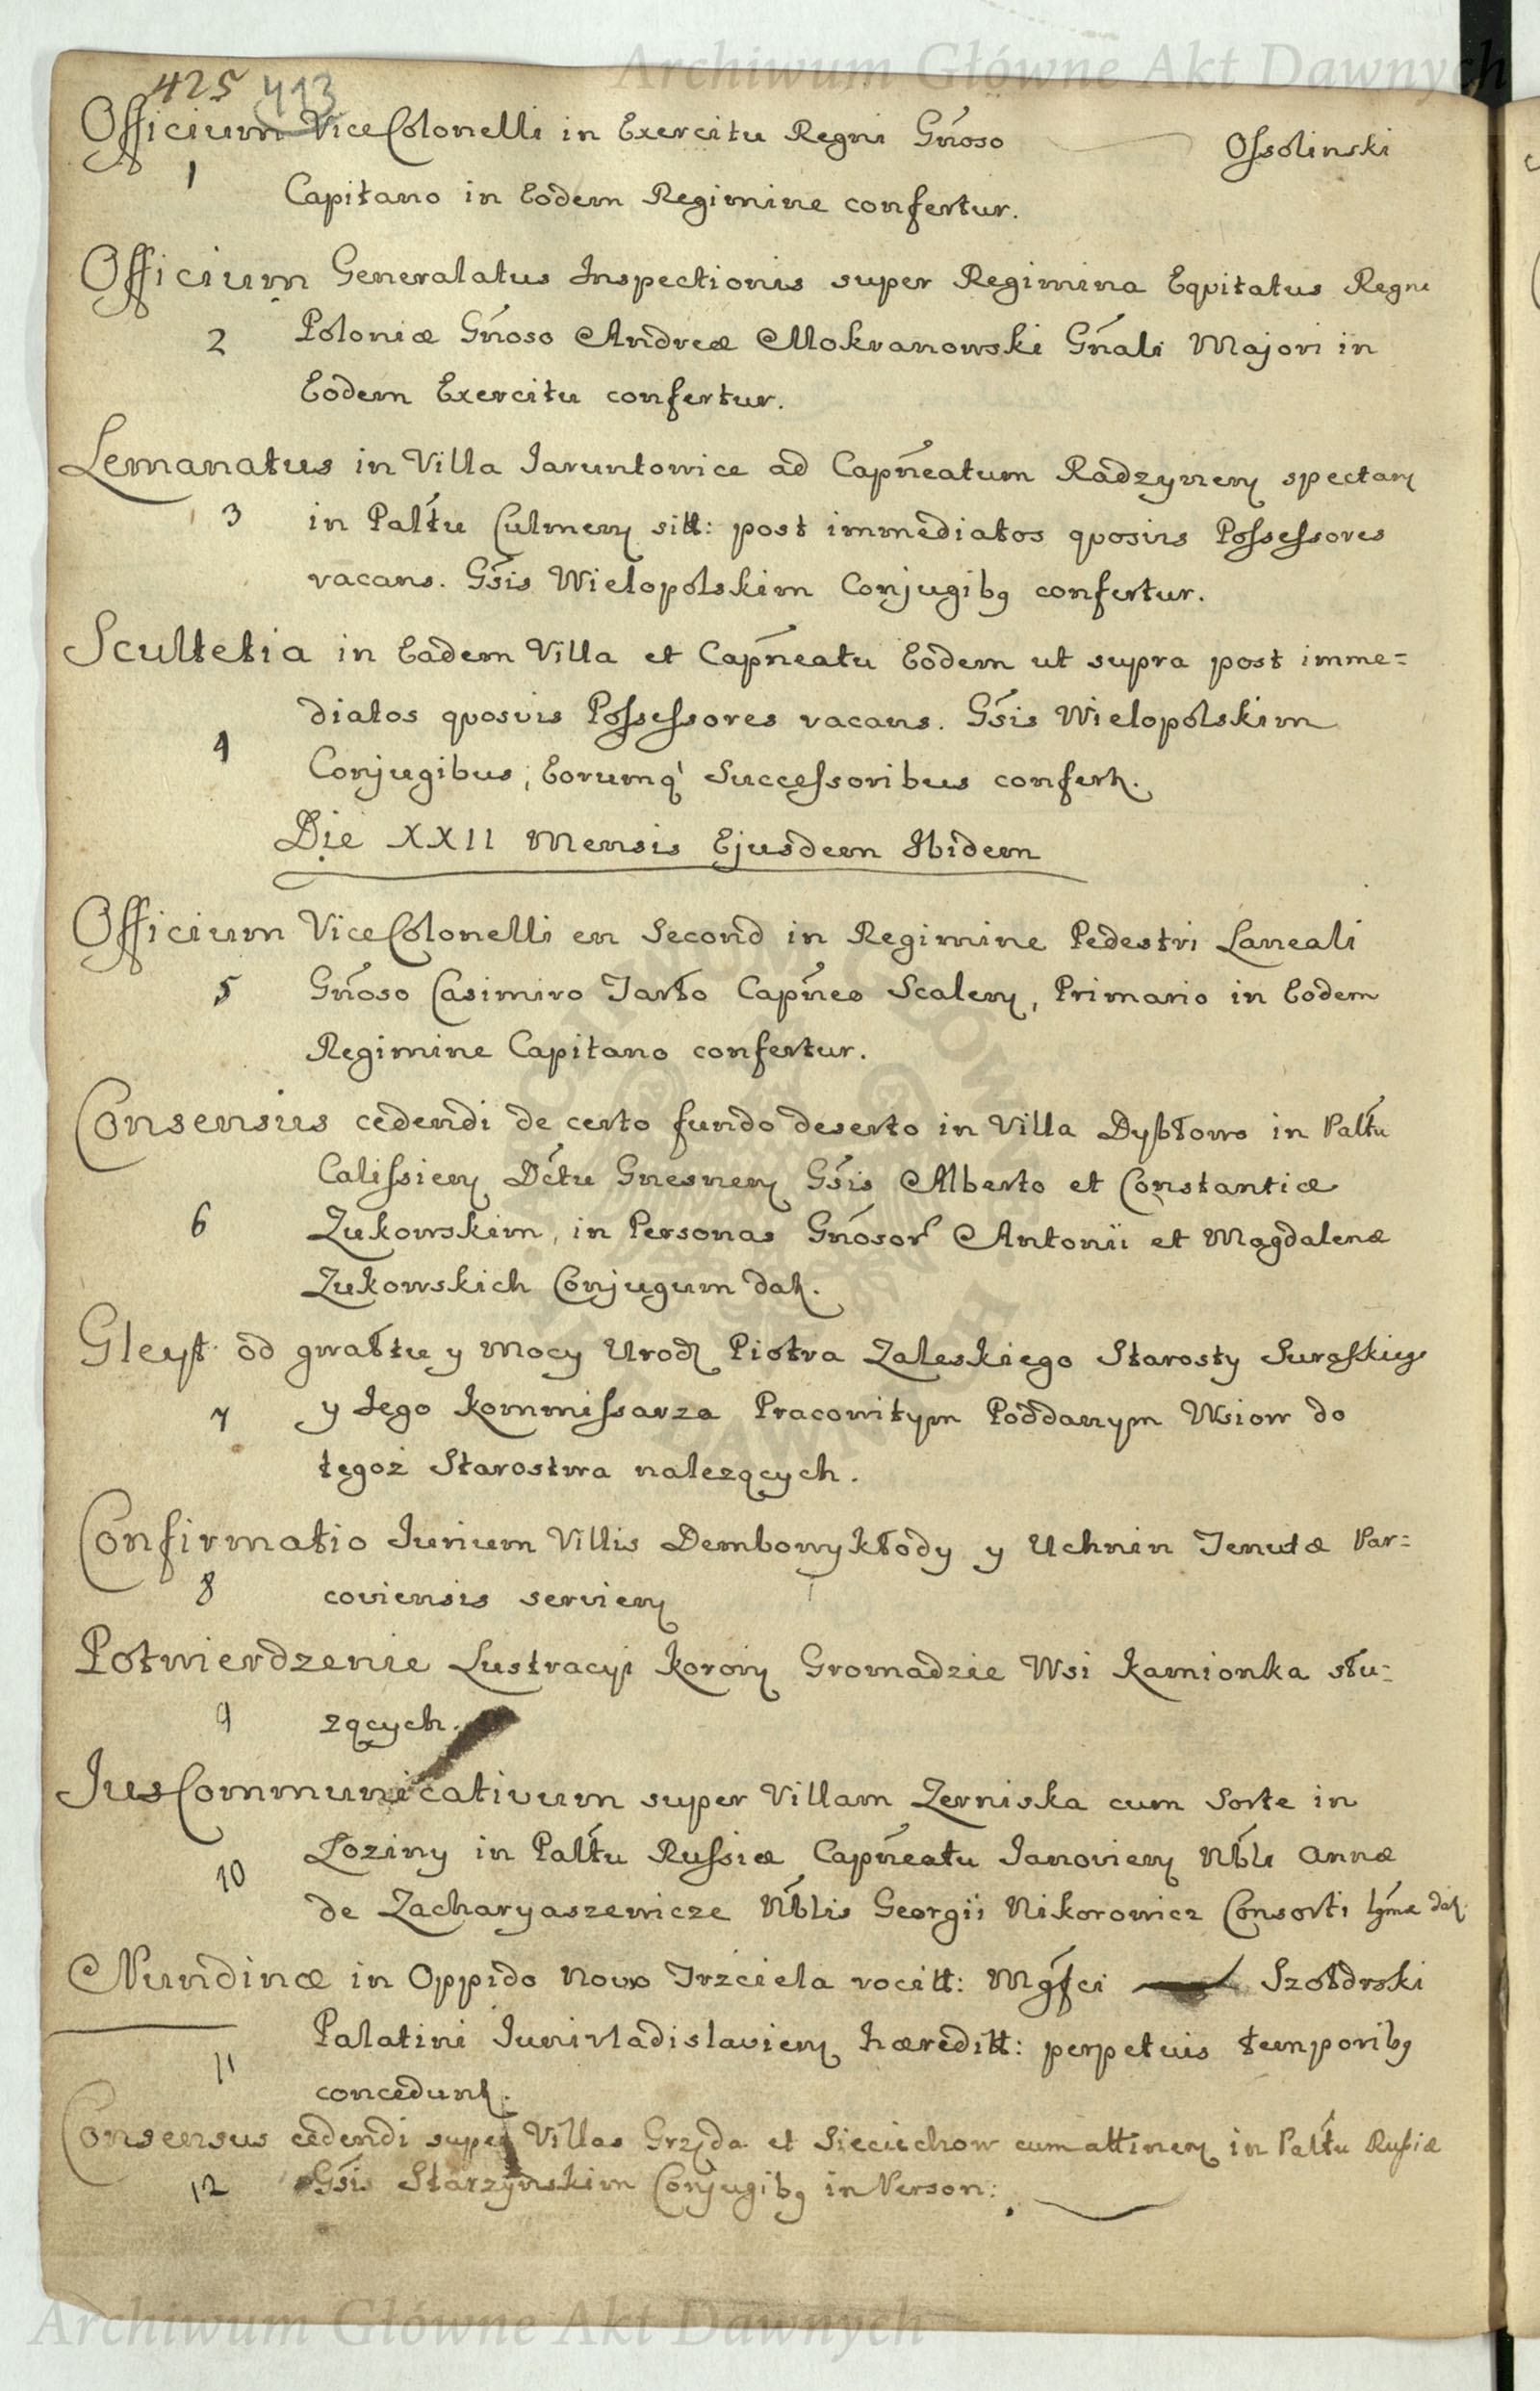 Archiwum Główne Akt Dawnych
425 413
Officium ViceColonelli in Exercitu Regni Gñoso Ossolinski
1
Capitano in Eodem Regimine confertur.
Officium Generalatus Inspectionis super Regimina Equitatus Regni
2 Poloniæ Gñoso Andreæ Mokranowski Gñali Majori in
Eodem Exercitu confertur.
Lemanatus in Villa Jaruntowice ad Capñeatum Radzynen spectan
3 in Paltu Culmen sitt: post immediatos quosvis Possessores
vacans. Gsis Wielopolskim Conjugibq confertur.
Scultetia in Eadem Villa et Capñeatu Eodem ut supra post imme=
diatos quosvis Possessores vacans. Gsis Wielopolskim
4 Conjugibus, Eorumq' Successoribus confert.
Die XXII Mensis Ejusdem Ibidem
Officium ViceColonelli en Second in Regimine Pedestri Laneali
5 Gñoso Casimiro Jarło Capñeo Scalen, Primario in Eodem
Regimine Capitano confertur.
Consensus cedendi de certo fundo deserto in Villa Dyßłowo in Paltu
Calissien Dctu Gnesnen Gsis Alberto et Constantiæ
6 Zukowskim, in Personas Gñosor Antonii et Magdalenæ
Zukowskich Conjugum dat.
Gleyt od gwałtu y Mocy Urodz Piotra Zaleskiego Starosty Suraskieg
7 y Jego Kommissarza Pracowitym Poddanym Wsiow do
tegoż Starostwa należących.
Confirmatio Jurium Villis Dembowykłody y Uchnin Tenutæ Par=
8 coviensis servien
Potwierdzenie Lustracyi Koron Gromadzie Wsi Kamionka słu=
9 zących.
Jus Communicativum super Villam Zerniska cum Sorte in
Łoziny in Paltu Russiæ Capñeatu Janovien Nbli Annæ
10
de Zacharyaszewicze Nblis Georgii Nikorowicz Consorti lgmæ dat.
Nundinæ in Oppido Novo Trzciela vocitt: Mgfci Szołdrski
Palatini Junivladislavien hæreditt: perpetuis temporibq
11
concedunt.
Consensus cedendi super Villas Grzęda et Sieciechow cum attinen in Paltu Rußiæ
12 Gsis Starzynskim Conjugibq in Person:
Archiwum Główne Akt Dawnych